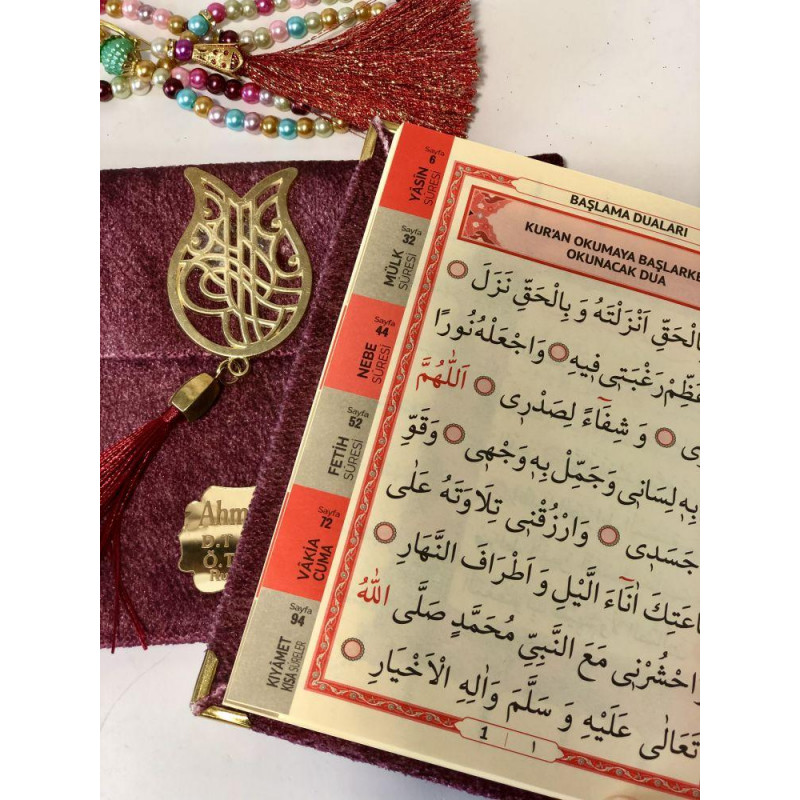 Sayfa
6
YÂSİN
SÛRESİ
Sayfa
32
MÜLK
SÛRESİ
Sayfa
44
NEBE
SÛRESİ
Sayfa
52
FETİH
SÛRESİ
Sayfa
72
VÂKİA
CUMA
Sayfa
94
KIYÂMET
KISA SÛRELER
BAŞLAMA DUALARI
KUR'AN OKUMAYA BAŞLARKE
OKUNACAK DUA
بِالْحَقِّ اَنْزَلْتَهُ وَ بِالْحَقِّ نَزَلَ
رَغْبَتٖى فٖيهِ وَاجْعَلْهُ نُورًا
وَ شِفَٓاءً لِصَدْرٖى اَللّٰهُمَّ
بِهٖ لِسَانٖى وَجَمِّلْ بِهٖ وَجْهٖى وَقَوِّ
جَسَدٖى وَارْزُقْنٖى تِلَاوَتَهُ عَلٰى
طَاعَتِكَ اٰنَٓاءَ الَّيْلِ وَ اَطْرَافَ النَّهَارِ
وَاحْشُرْنٖى مَعَ النَّبِيِّ مُحَمَّدٍ صَلَّى اللّٰهُ
تَعَالٰى عَلَيْهِ وَ سَلَّمَ وَاٰلِهِ الْاَخْيَارِ
1 ١
Ahm
D.T
Ö.T